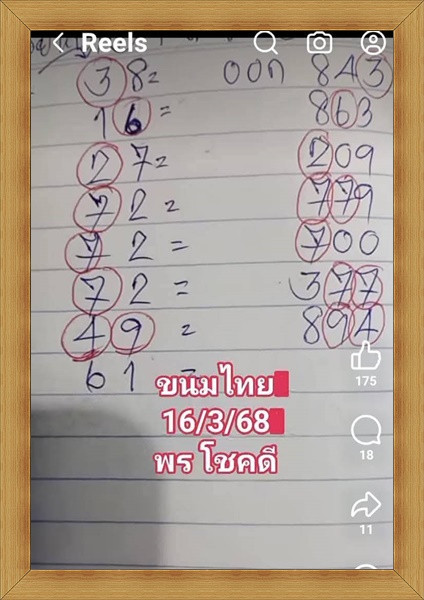 Reels
38= ออก 843
16= 863
27= 209
72= 779
72= 700
72= 377
49= 894
61=
ขนมไทย
16/3/68
พร โชคดี
175
18
11